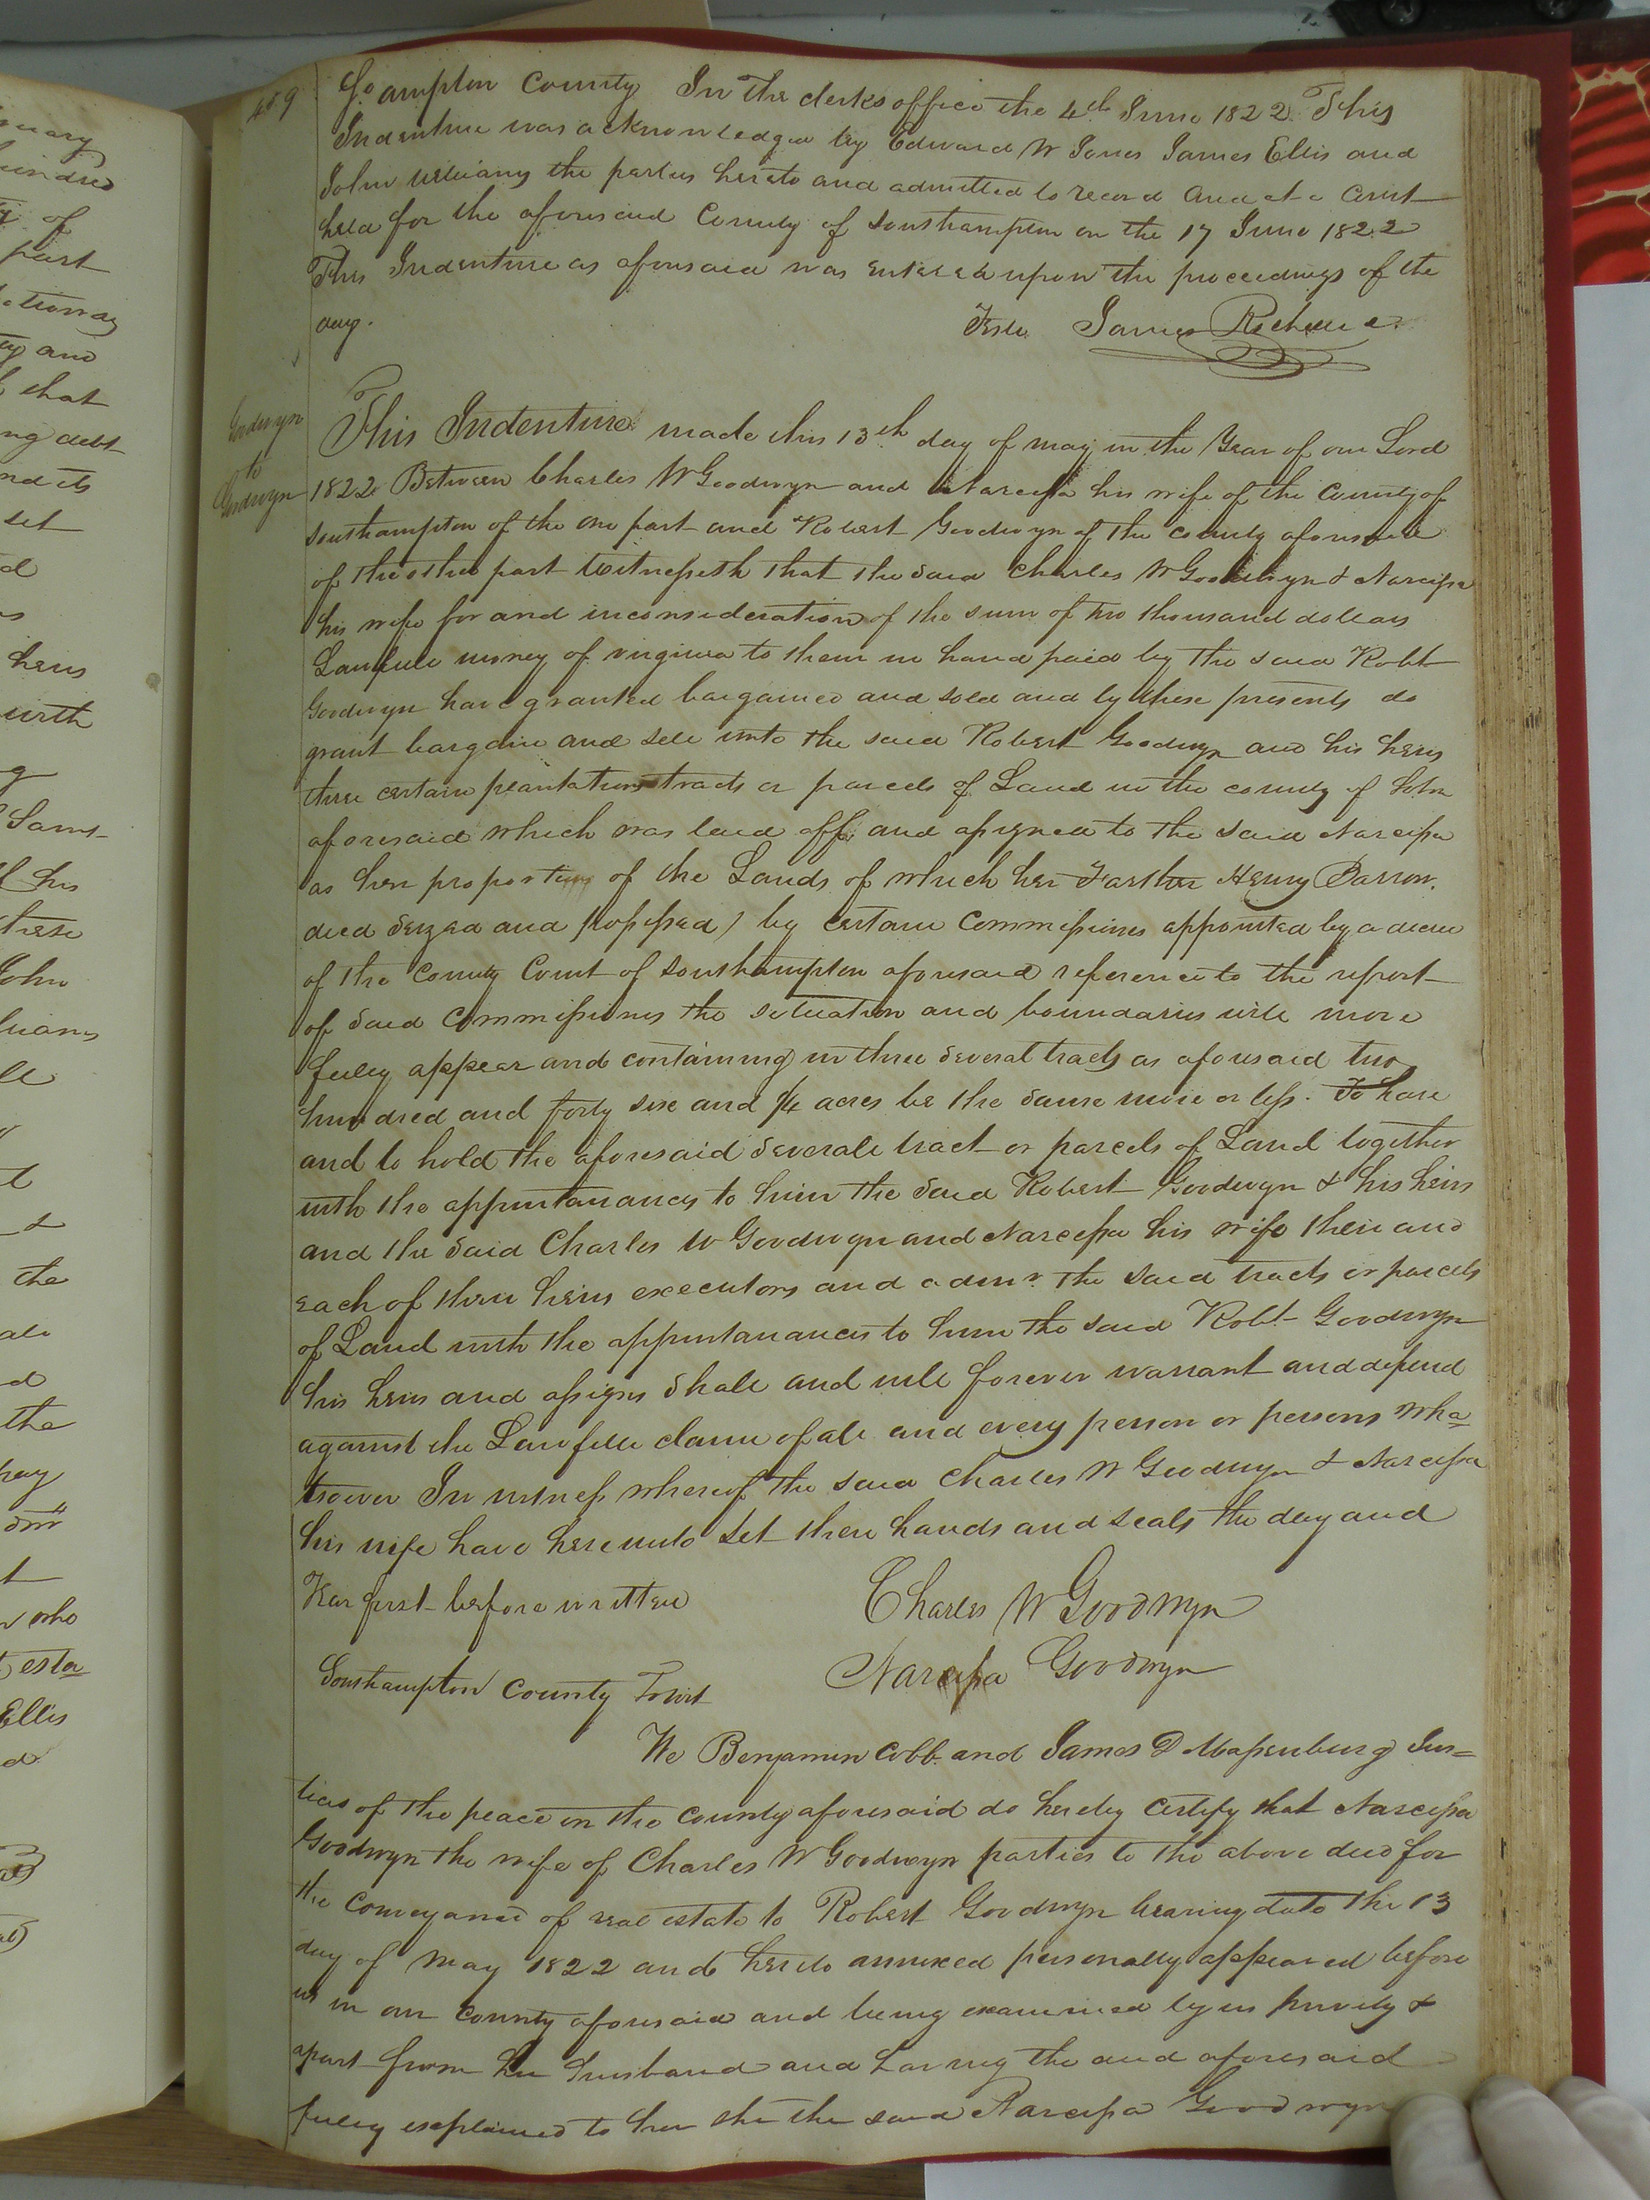 459
So ampton County In the clerks office the 4th June 1822 This
Indenture was acknowledged by Edward W Jones James Ellis and
John Williams the parties hereto and admitted to record And at a Court
held for the aforesaid County of Southampton on the 17 June 1822
This Indenture as aforesaid was entered upon the proceedings of the
day. Teste James Rochelle
Goodwyn
to
Goodwyn
This Indenture made this 13th day of may in the Year of our Lord
1822 Between Charles W Goodwyn and Narcissa his wife of the County of
Southampton of the one part and Robert Goodwyn of the county aforesaid
of the other part Witnesseth that the said Charles W Goodwyn & Narcissa
his wife for and inconsideration of the sum of two thousand dollars
Lawfull money of virginia to them in hand paid by the said Robt
Goodwyn have granted bargained and sold and by these presents do
grant bargain and sell unto the said Robert Goodwyn and his heirs
three certain plantations tracts or parcels of Land in the county of
aforesaid which was laid off and assigned to the said Narcissa
as her proportion of the Lands of which her Farther Henry Barrow.
died seized and possessed) by certain Commissioners appointed by a decree
of the County Court of Southampton aforesaid reference to the report
of said Commissioners the situation and boundaries will more
fully appear and containing in three several tracts as aforesaid two
hundred and forty six and 1/4 acres be the same more or less. To have
and to hold the aforesaid severale tract or parcels of Land together
with the appurtanances to him the said Robert Goodwyn & his heirs
and the said Charles W Goodwyn and Narcissa his wife their and
each of their heirs executors and admr. the said tracts or parcels
of Land with the appurtanances to him the said Robt Goodwyn
his heirs and assigns shall and will forever warrant and defend
against the Lawfull claim of all and every person or persons wha
tsoever In witness whereof the said Charles W Goodwyn & Narcissa
his wife have hereunto set their hands and seals the day and
Year first before written Charles W Goodwyn
Narcissa Goodwyn
Southampton County Towit
We Benjamin Cobb and James D Massenburg Jus=
tices of the peace in the County aforesaid do hereby Certify that Narcissa
Goodwyn the wife of Charles W Goodwyn parties to the above deed for
the Conveyance of real estate to Robert Goodwyn bearing date the 13
day of May 1822 and hereto annexed personally appeared before
us in our County aforesaid and being examined by us privily &
apart from her husband and having the deed aforesaid
fully explained to her she the said Narcissa Goodwyn